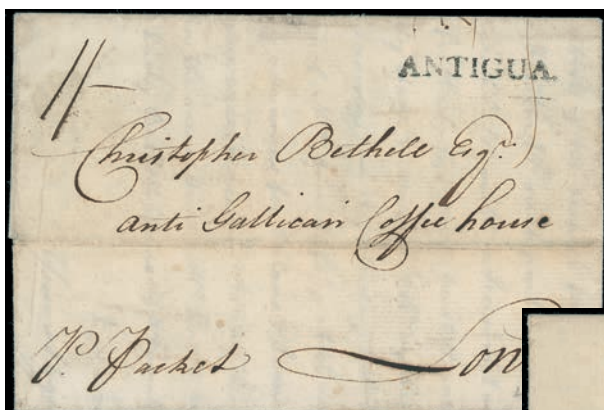 ANTIGUA.
1/-
Christopher Bethell Esqr.
anti Gallican Coffee house
P. Packet Lon